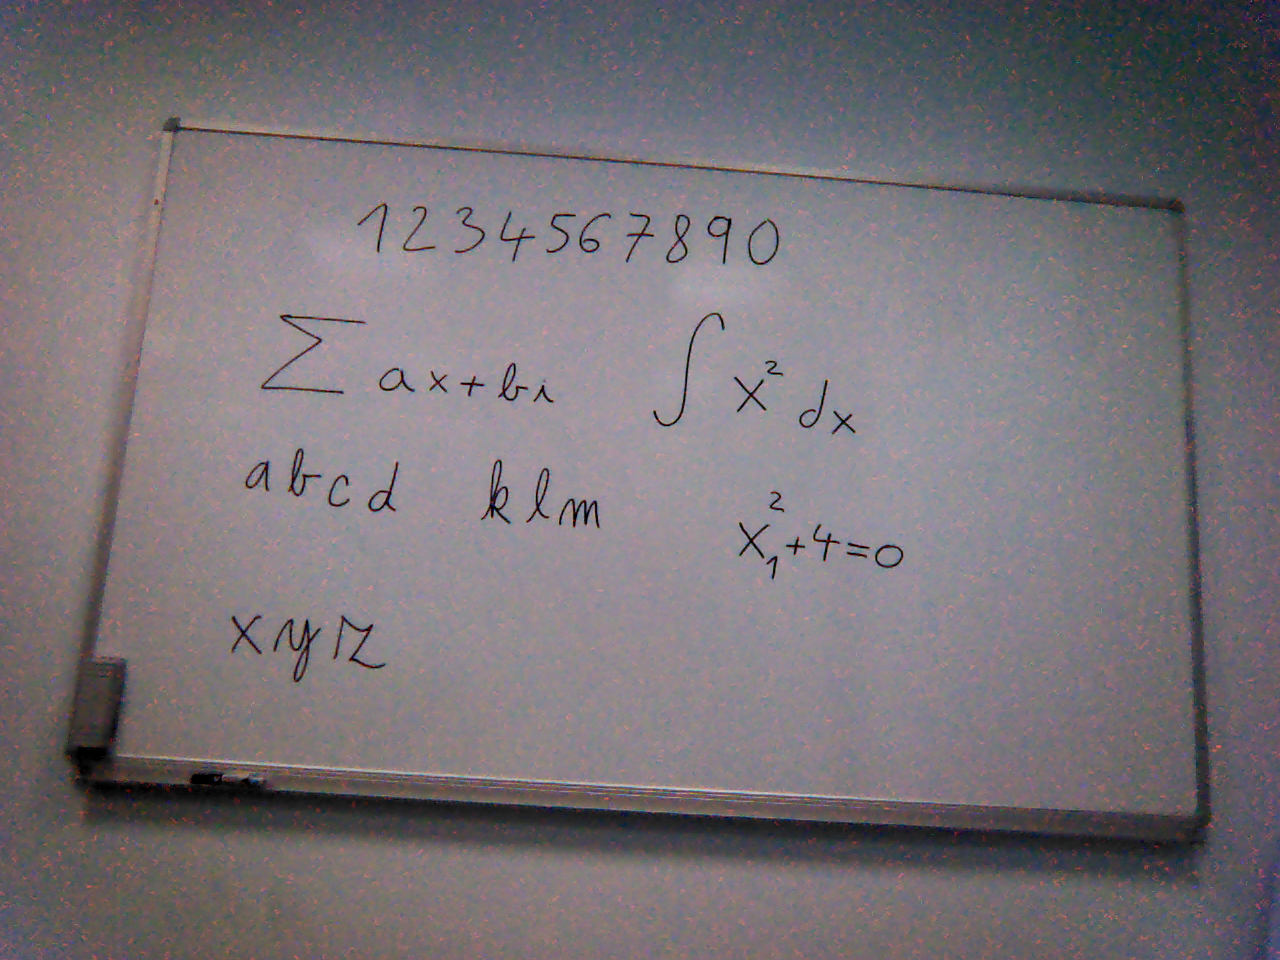 1234567890
∑ ax+bi ∫ x² dx
abcd klm
x₁²+4=0
xyz